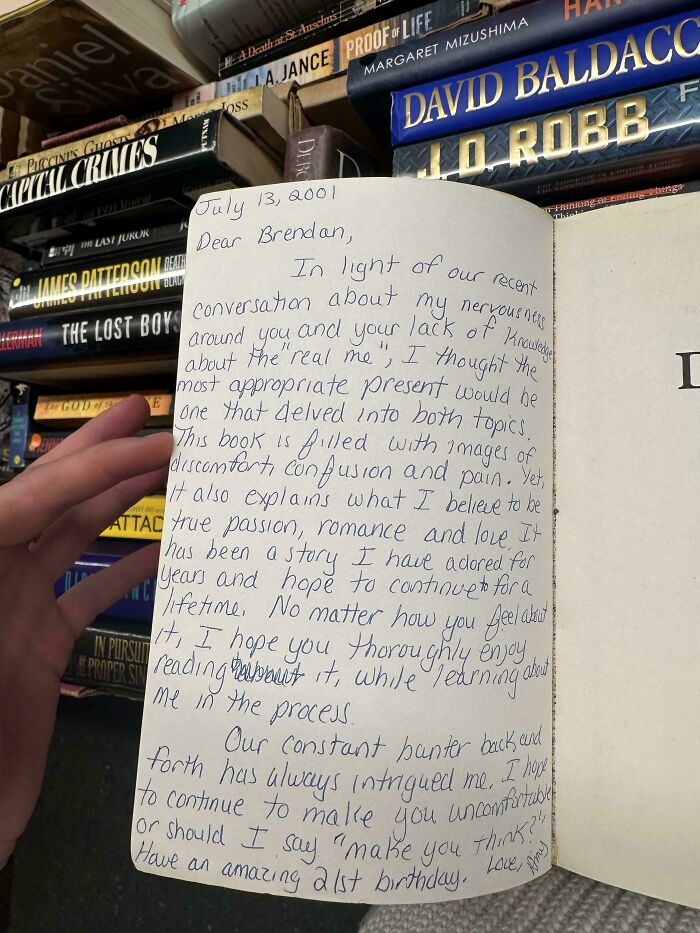 Daniel
Silva
A Death at St. Anselm's
PROOF of LIFE
J.A. JANCE
MARGARET MIZUSHIMA
HAN
DAVID BALDACC
J.D. ROBB
F
Thinking of Ending Things
PUCCINI'S GHOSTS
Joss
CAPITAL CRIMES
THE LAST JUROR
JO
JAMES PATTERSON
DEATH
BLAC
LLERMAN THE LOST BOYS
The GOD of the
ATTAC
IN PURSUIT
of the PROPER SIN
July 13, 2001
Dear Brendan,
In light of our recent
conversation about my nervousness
around you and your lack of knowledge
about the "real me", I thought the
most appropriate present would be
one that delved into both topics.
This book is filled with images of
discomfort, confusion and pain. Yet,
it also explains what I believe to be
true passion, romance and love. It
has been a story I have adored for
years and hope to continue to for a
lifetime. No matter how you feel about
it, I hope you thoroughly enjoy
reading it, while learning about
me in the process.
Our constant banter back and
forth has always intrigued me. I hope
to continue to make you uncomfortable
or should I say "make you think?"
Have an amazing 21st birthday. Love, Amy